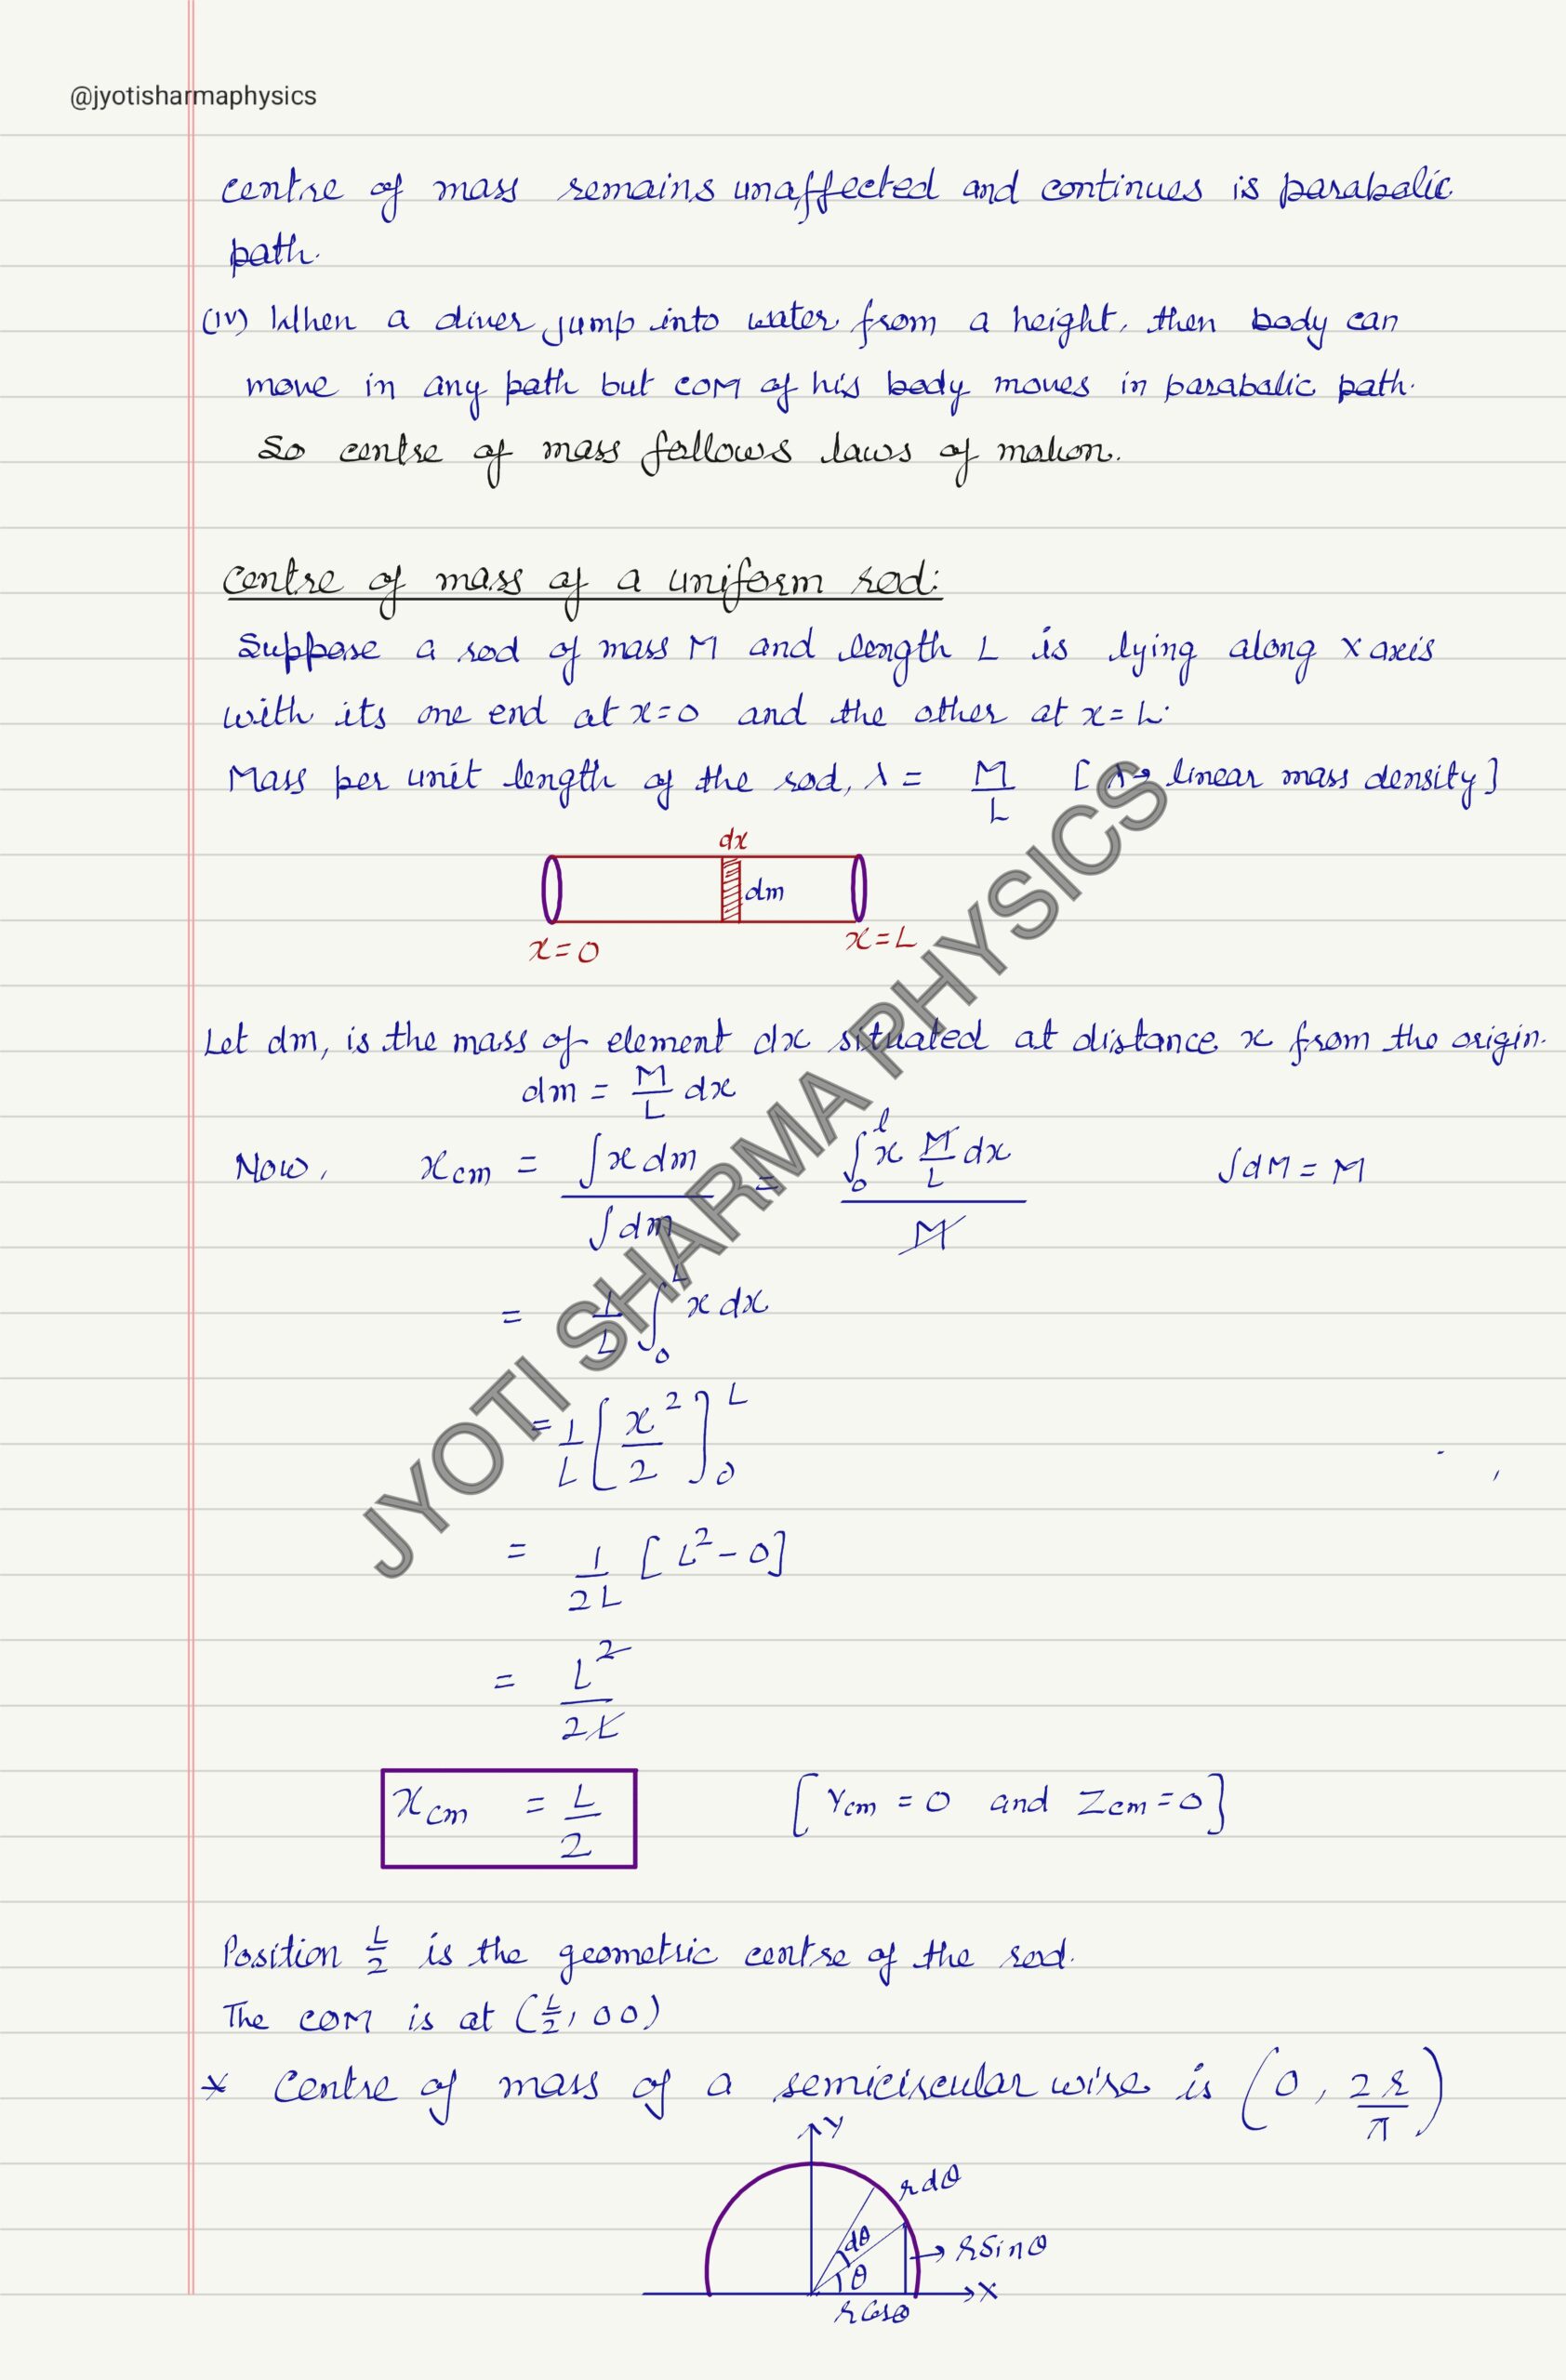 @jyotisharmaphysics
centre of mass remains unaffected and continues is parabolic
path.
(iv) When a diver jump into water from a height, then body can
move in any path but COM of his body moves in parabolic path.
So centre of mass follows laws of motion.
Centre of mass of a uniform rod:
Suppose a rod of mass M and length L is lying along x axis
with its one end at x=0 and the other at x=L.
Mass per unit length of the rod, λ = M/L [λ→ linear mass density]
dx
dm
x=0 x=L
Let dm, is the mass of element dx situated at distance x from the origin.
dm = M/L dx
Now, xcm = ∫x dm / ∫dm = ∫₀ˡ x M/L dx / M ∫dM = M
= 1/L ∫₀ᴸ x dx
= 1/L [x²/2]₀ᴸ
= 1/2L [L²-0]
= L²/2L
xcm = L/2 [Ycm = 0 and Zcm = 0]
Position L/2 is the geometric centre of the rod.
The COM is at (L/2, 00)
* Centre of mass of a semicircular wire is (0, 2r/π)
Y
rdθ
dθ
→ rsinθ
θ
X
rcosθ
JYOTI SHARMA PHYSICS